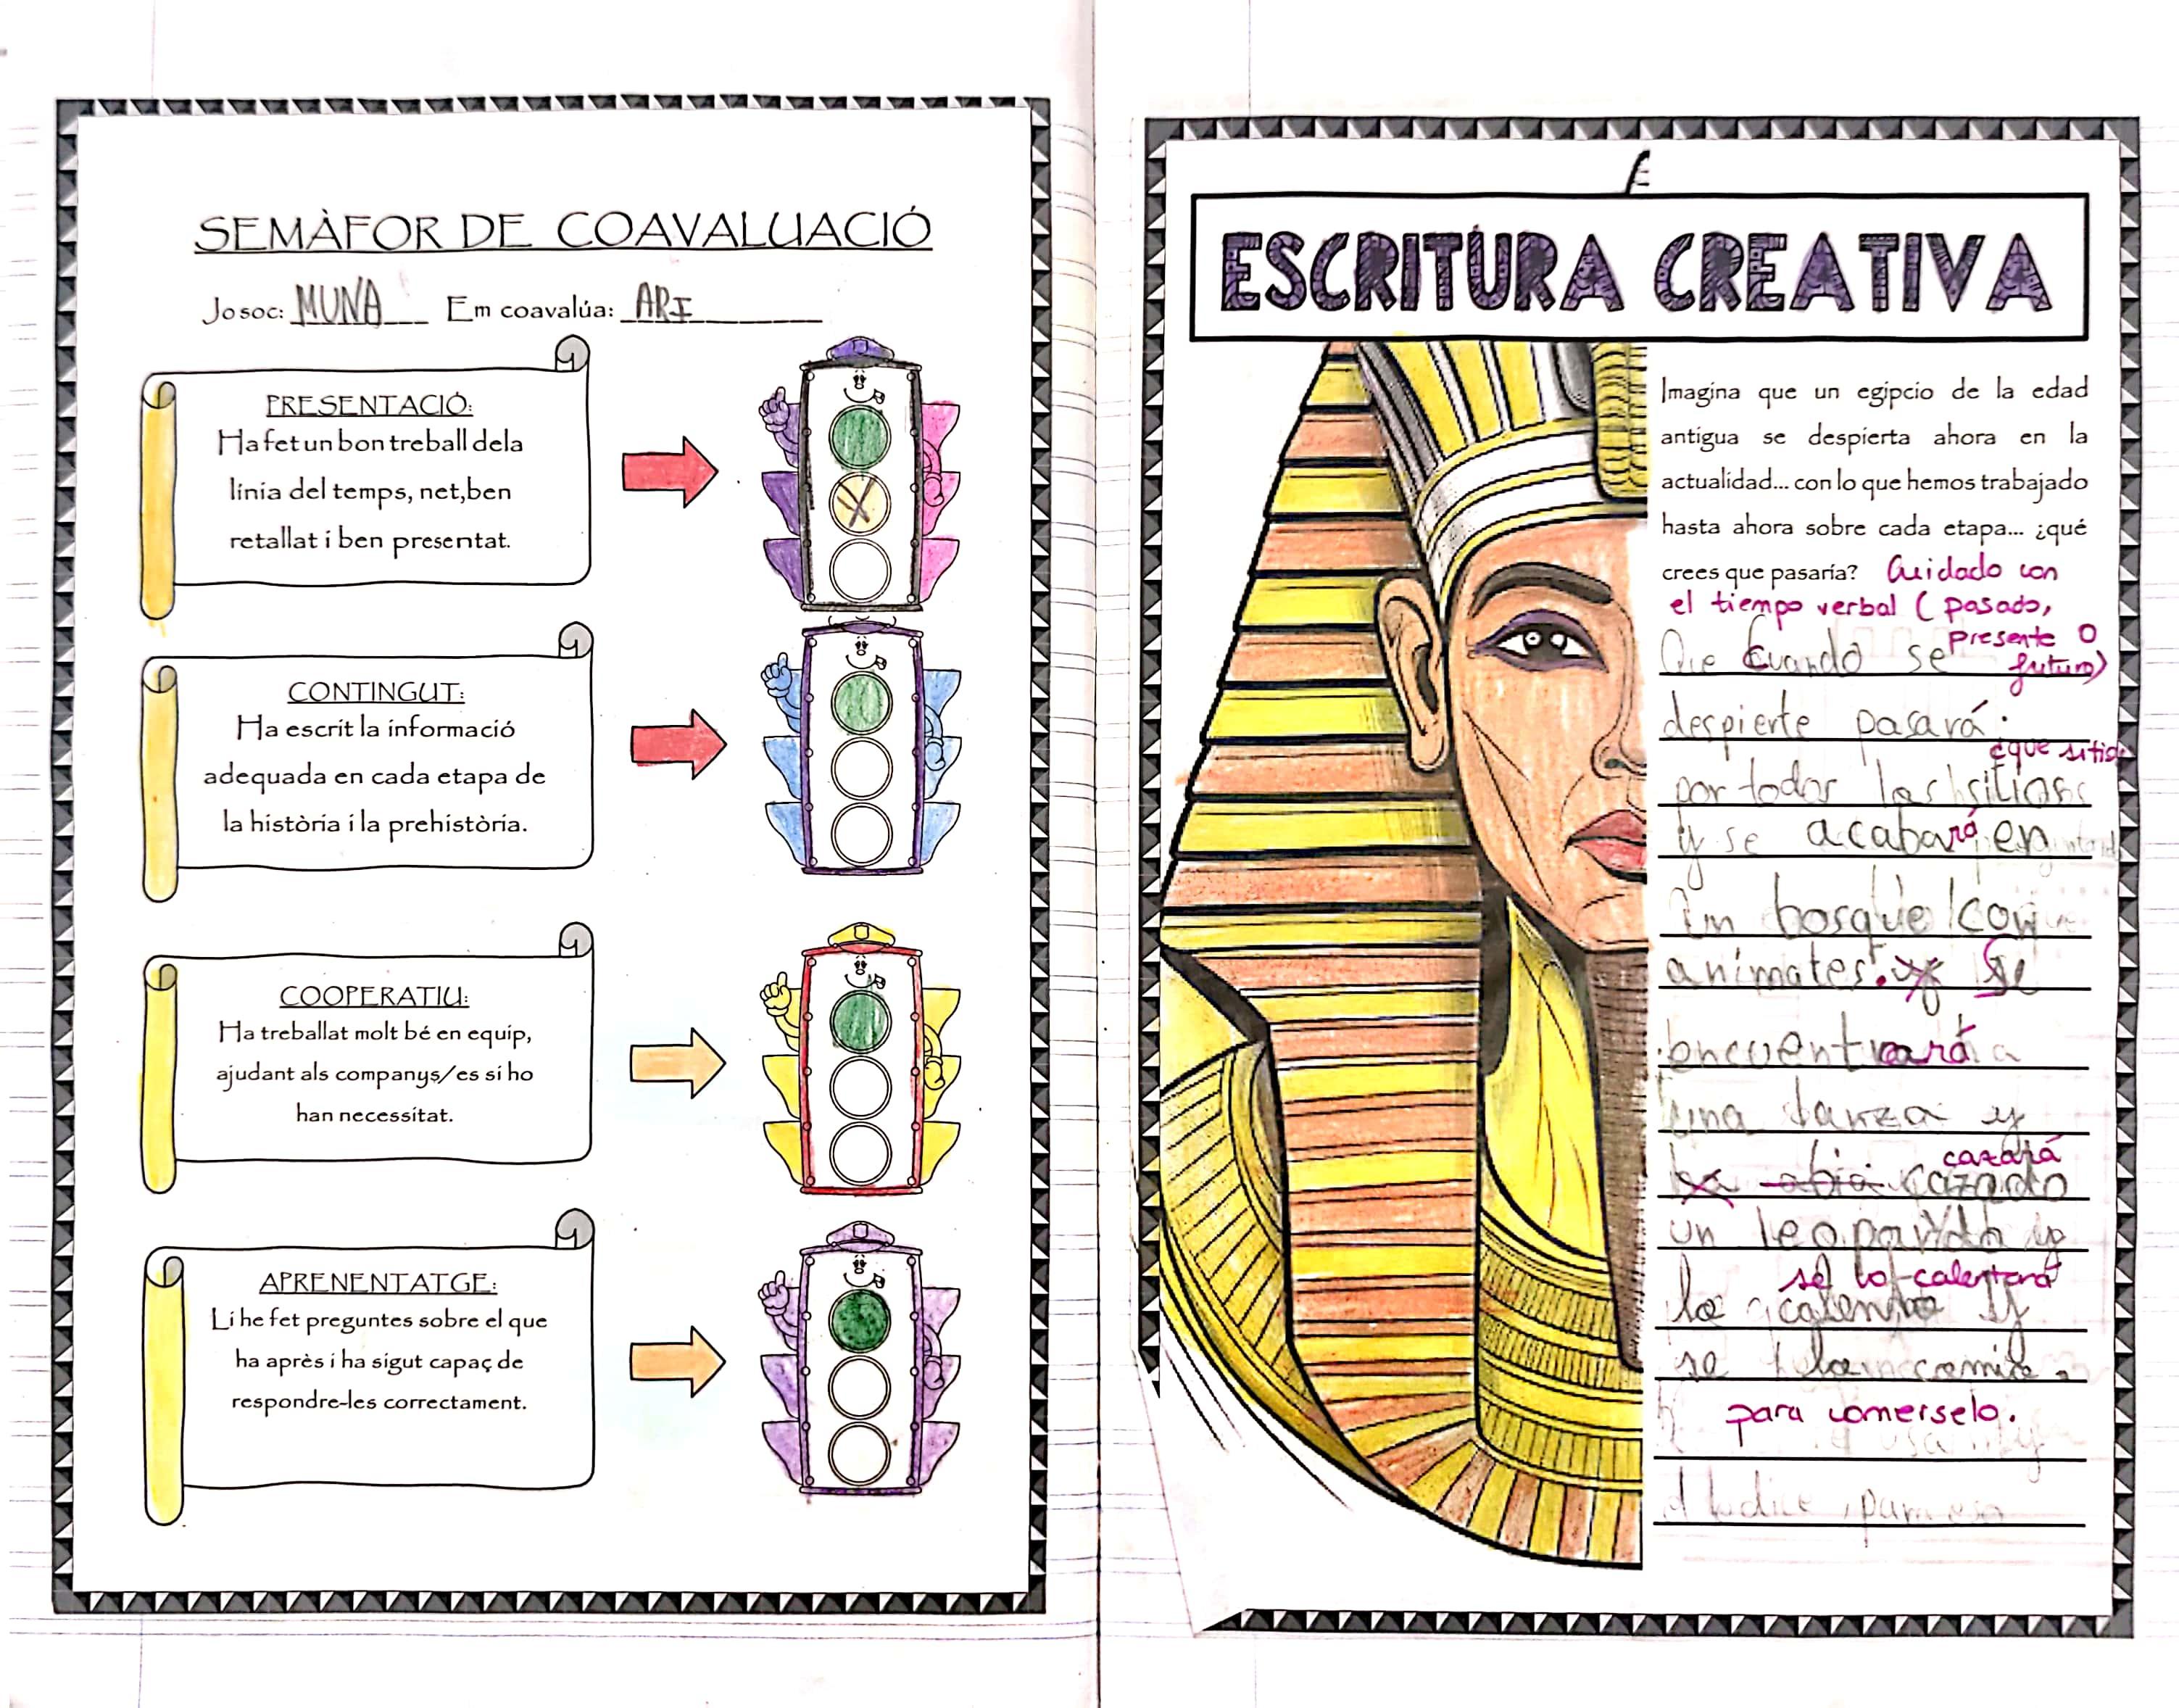 SEMÀFOR DE COAVALUACIÓ
Jo soc: MUNA Em coavalúa: ARI
PRESENTACIÓ:
Ha fet un bon treball dela
línia del temps, net,ben
retallat i ben presentat.
CONTINGUT:
Ha escrit la informació
adequada en cada etapa de
la història i la prehistòria.
COOPERATIU:
Ha treballat molt bé en equip,
ajudant als companys/es si ho
han necessitat.
APRENENTATGE:
Li he fet preguntes sobre el que
ha après i ha sigut capaç de
respondre-les correctament.
ESCRITURA CREATIVA
Imagina que un egipcio de la edad
antigua se despierta ahora en la
actualidad... con lo que hemos trabajado
hasta ahora sobre cada etapa... ¿qué
crees que pasaría? Cuidado con
el tiempo verbal (pasado,
presente o
futuro)
Que Cuando se
despierte pasará
¿que sitio
por todos los sitios
y se acabará en
un bosque con
animales. y Se
encuentrará
una lanza y
cazará
cazado
un leopardo y
se lo calentará
lo calento y
se lo comio.
para comerselo.